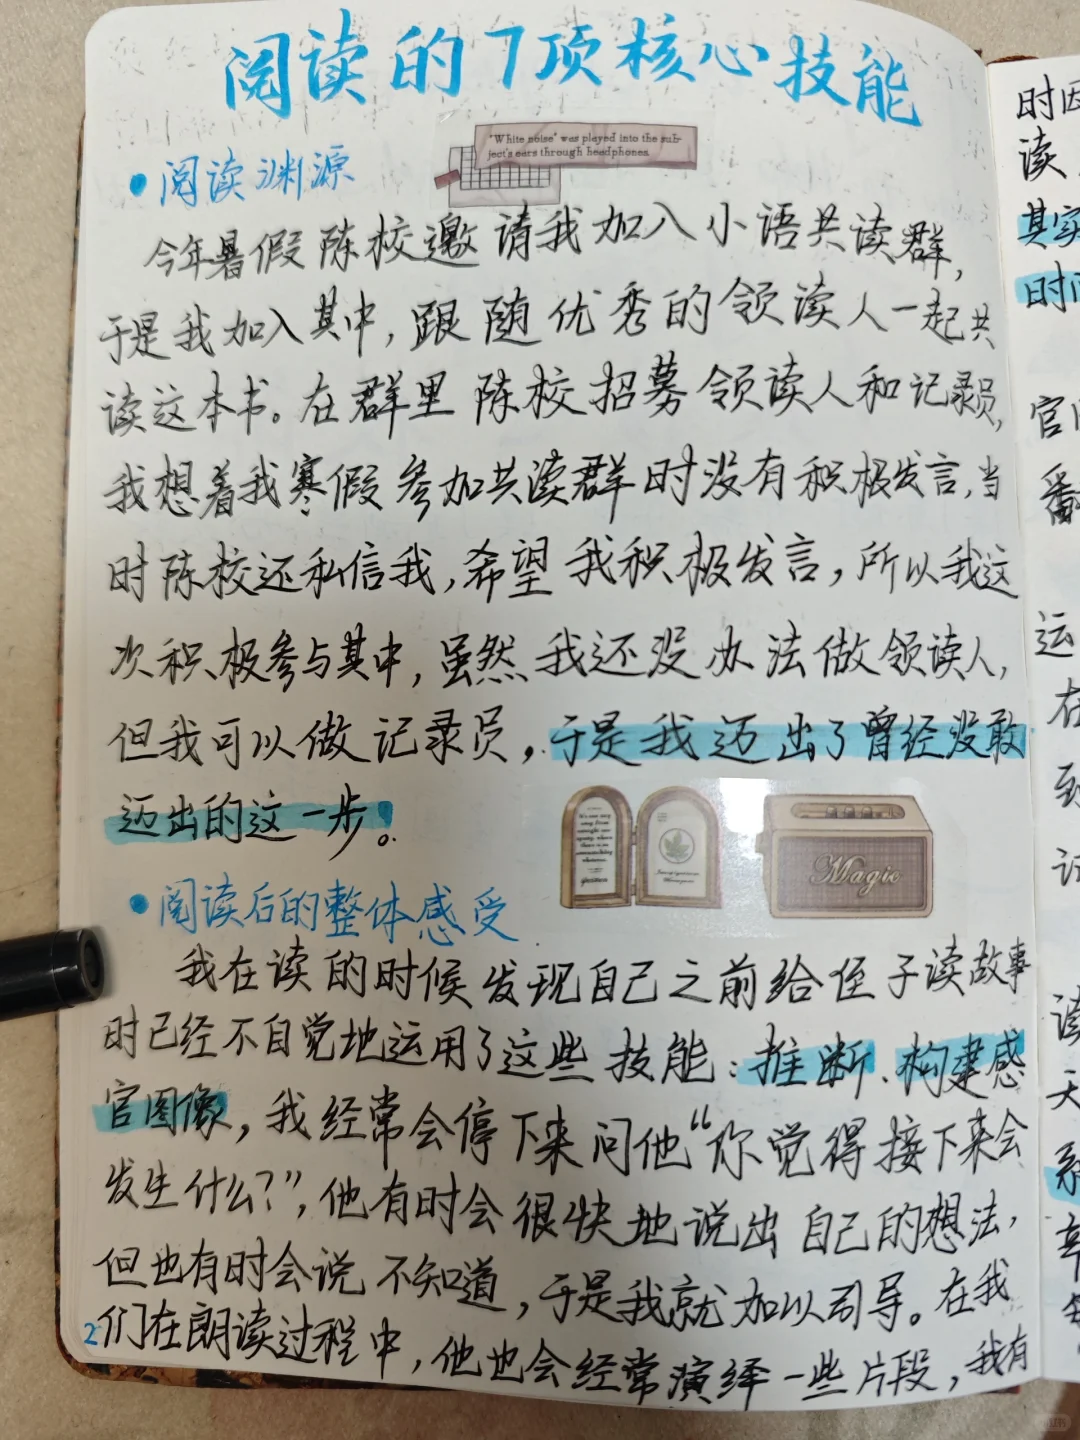 阅读的7项核心技能
"White noise" was played into the sub-
ject's ears through headphones.
•阅读渊源
今年暑假陈校邀请我加入小语共读群,
于是我加入其中,跟随优秀的领读人一起共
读这本书。在群里陈校招募领读人和记录员,
我想着我寒假参加共读群时没有积极发言,当
时陈校还私信我,希望我积极发言,所以我这
次积极参与其中,虽然我还没办法做领读人,
但我可以做记录员,于是我迈出了曾经没敢
迈出的这一步。
Magic
•阅读后的整体感受
我在读的时候发现自己之前给侄子读故事
时已经不自觉地运用了这些技能:推断、构建感
官图像,我经常会停下来问他“你觉得接下来会
发生什么?”,他有时会很快地说出自己的想法,
但也有时会说不知道,于是我就加以引导。在我
们在朗读过程中,他也会经常演绎一些片段,我有
2
时因
读
其实
时间
官
翻
运
在
到
记
读
天
系